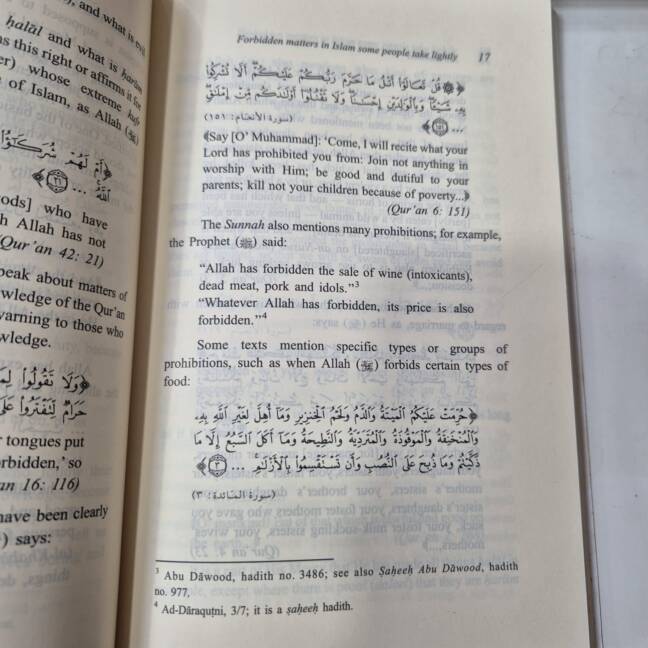 ), and what is evil
ḥalāl and what is ḥarām
s this right or affirms it for
er) whose extreme kufr
e of Islam, as Allah (ﷻ)
﴿أَمْ لَهُمْ شُرَكَٰٓؤُا۟
ٱللَّهُ ... ﴿٢١﴾﴾
ods] who have
h Allah has not
Qur'an 42: 21)
peak about matters of
wledge of the Qur'an
warning to those who
wledge.
﴿وَلَا تَقُولُوا۟ لِمَا
حَرَامٌ لِّتَفْتَرُوا۟ عَلَى
r tongues put
orbidden,' so
an 16: 116)
have been clearly
) says:
Forbidden matters in Islam some people take lightly 17
﴿۞ قُلْ تَعَالَوْا۟ أَتْلُ مَا حَرَّمَ رَبُّكُمْ عَلَيْكُمْ أَلَّا تُشْرِكُوا۟
بِهِۦ شَيْـًٔا وَبِٱلْوَٰلِدَيْنِ إِحْسَٰنًا وَلَا تَقْتُلُوٓا۟ أَوْلَٰدَكُم مِّنْ إِمْلَٰقٍ
... ﴿١٥١﴾﴾ (سورة الأنعام: ١٥١)
﴾Say [O' Muhammad]: 'Come, I will recite what your
Lord has prohibited you from: Join not anything in
worship with Him; be good and dutiful to your
parents; kill not your children because of poverty...﴿
(Qur'an 6: 151)
The Sunnah also mentions many prohibitions; for example,
the Prophet (ﷺ) said:
“Allah has forbidden the sale of wine (intoxicants),
dead meat, pork and idols.”³
“Whatever Allah has forbidden, its price is also
forbidden.”⁴
Some texts mention specific types or groups of
prohibitions, such as when Allah (ﷻ) forbids certain types of
food:
﴿حُرِّمَتْ عَلَيْكُمُ ٱلْمَيْتَةُ وَٱلدَّمُ وَلَحْمُ ٱلْخِنزِيرِ وَمَآ أُهِلَّ لِغَيْرِ ٱللَّهِ بِهِۦ
وَٱلْمُنْخَنِقَةُ وَٱلْمَوْقُوذَةُ وَٱلْمُتَرَدِّيَةُ وَٱلنَّطِيحَةُ وَمَآ أَكَلَ ٱلسَّبُعُ إِلَّا مَا
ذَكَّيْتُمْ وَمَا ذُبِحَ عَلَى ٱلنُّصُبِ وَأَن تَسْتَقْسِمُوا۟ بِٱلْأَزْلَٰمِ ... ﴿٣﴾﴾
(سورة المائدة: ٣)
³ Abu Dāwood, hadith no. 3486; see also Ṣaḥeeḥ Abu Dāwood, hadith
no. 977,
⁴ Ad-Dāraquṭni, 3/7; it is a ṣaḥeeḥ hadith.